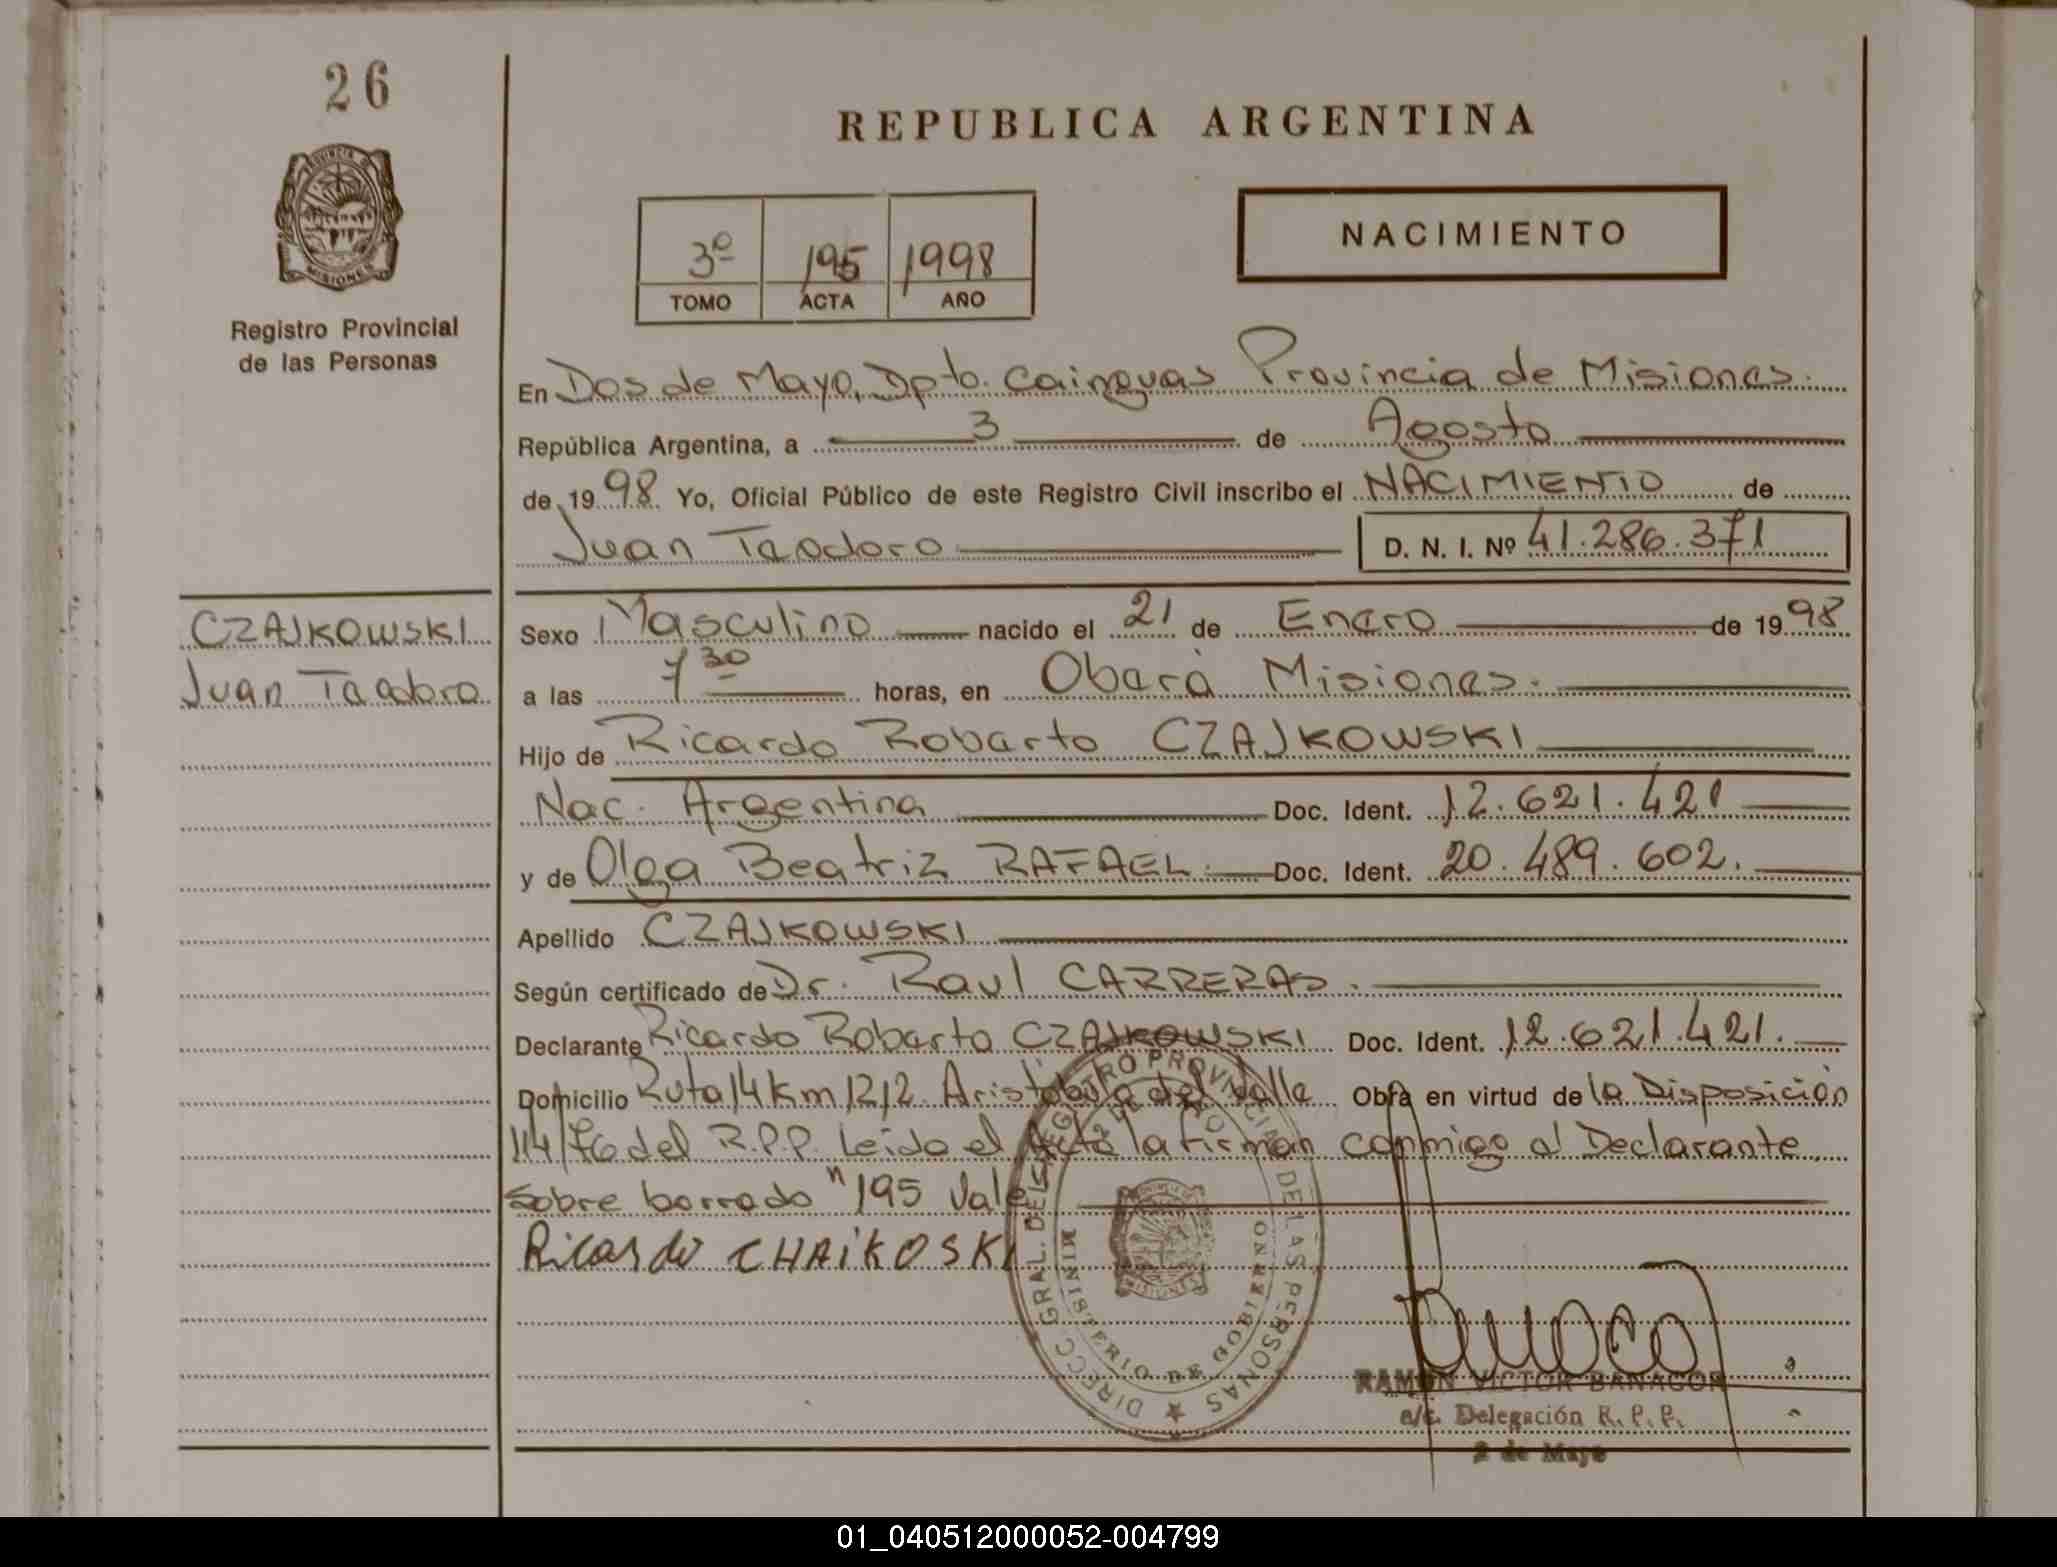 26
PROVINCIA DE
MISIONES
Registro Provincial
de las Personas
REPUBLICA ARGENTINA
3º 195 1998
TOMO ACTA AÑO
NACIMIENTO
En Dos de Mayo, Dpto. Cainguas Provincia de Misiones.
República Argentina, a 3 de Agosto
de 1998. Yo, Oficial Público de este Registro Civil inscribo el NACIMIENTO de
Juan Teodoro D. N. I. Nº 41.286.371
CZAJKOWSKI
Juan Teodoro
Sexo Masculino nacido el 21 de Enero de 1998
a las 7 30 horas, en Oberá Misiones.
Hijo de Ricardo Roberto CZAJKOWSKI
Nac. Argentina Doc. Ident. 12.621.421
y de Olga Beatriz RAFAEL. Doc. Ident. 20.489.602.
Apellido CZAJKOWSKI
Según certificado de Dr. Raul CARRERAS.
Declarante Ricardo Roberto CZAJKOWSKI Doc. Ident. 12.621.421.
Domicilio Ruta 14 Km 1212 Aristóbulo del Valle Obra en virtud de la Disposición
114/76 del R.P.P. Leido el Acta la firman conmigo el Declarante.
Sobre borrado "195 Vale
Ricardo CHAiKOSKI
DIRECC. GRAL. DEL REGISTRO PROVINCIAL DE LAS PERSONAS
MINISTERIO DE GOBIERNO
MISIONES
RAMON VICTOR BANAGOR
a/c. Delegación R. P. P.
2 de Mayo
01_040512000052-004799